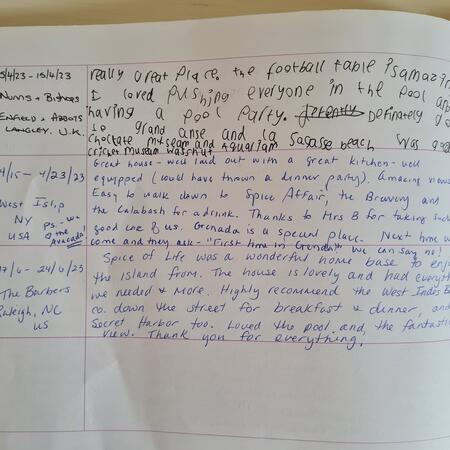 5/4/23 - 15/4/23
Nunns + Bishops
ENFIELD + ABBOTS
LANGLEY. U.K.
really Great Place. the football table is amazin
I loved PUSHING everyone in the pool an
having a pool Party. Definately g
to grand anse and la Sagasse beach was g
choclate museam and aquariam
cricket museum was shut
4/15 - 4/23/23
West Islip
NY
USA
PS - we
the
avocado
Great house - well laid out with a great kitchen - well
equipped (could have thrown a dinner party). Amazing views
Easy to walk down to Spice Affair, the Brewery and
the Calabash for a drink. Thanks to Mrs B for taking such
good care of us. Grenada is a special place. Next time w
come and they ask - "First time in Grenada" we can say no!
17/6 - 24/6/23
The Barbers
Raleigh, NC
US
Spice of Life was a wonderful home base to enjo
the island from. The house is lovely and had everyth
we needed + more. Highly recommend the West Indes B
co. down the street for breakfast + dinner, and
Secret Harbor too. Loved the pool, and, the fantasti
view. Thank you for everything.